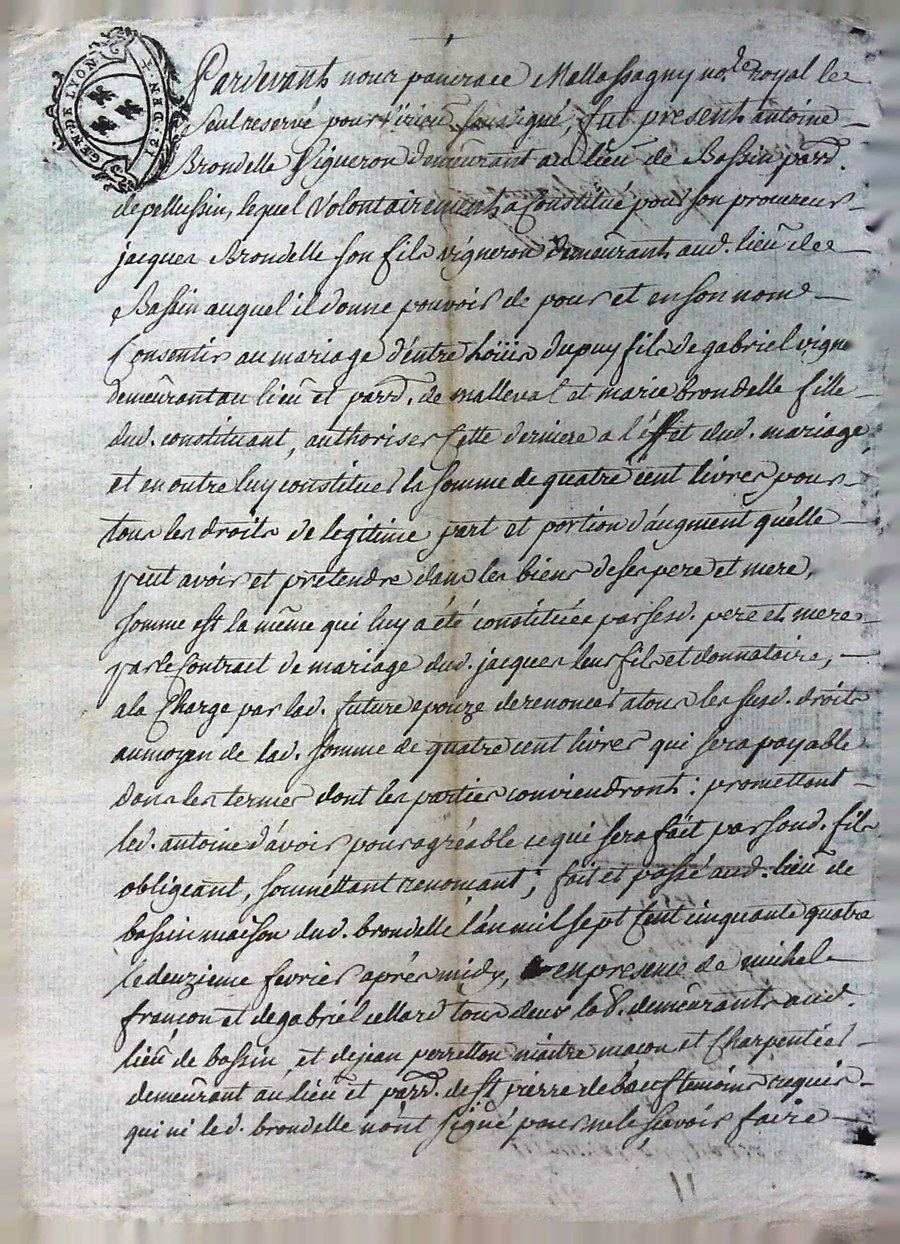 GEN. DE LYON 12 DEN. T.
Pardevant nous pancrace Mallassagny no.re royal le
seul reservé pour Virieu soussigné, fut present antoine
Brondelle Vigneron demeurant au lieu de Bassin parr.
de pellussin, lequel Volontairement a Constitué pour son procureur
jacques Brondelle son fils vigneron demeurant aud. lieu de
Bassin auquel il donne pouvoir de pour et en son nom
Consentir au mariage d'entre Loüis dupuy fils de gabriel vigne
demeurant au lieu et parr. de malleval et marie brondelle fille
dud. constituant, authoriser Cette derniere a l'éffet dud. mariage,
et en outre luy constituer la somme de quatre cent livres pour
tous les droits de legitime part et portion d'augment qu'elle
peut avoir et pretendre dans les biens de ses pere et mere,
somme est la même qui luy a été constituée par sesd. pere et mere
par le Contract de mariage dud. jacques leur fils et donnataire,
a la Charge par lad. future epouze de renoncer a tous les susd. droits
au moyen de lad. somme de quatre cent livres qui sera payable
dans les termes dont les parties conviendront : promettant
led. antoine d'avoir pour agréable ce qui sera fait par sond. fils
obligeant, soumettant renonçant ; fait et passé aud. lieu de
bassin maison dud. brondelle l'an mil sept Cent cinquante quatre
le deuzieme fevrier aprés midy, en presence de michel
francon et de gabriel cellard tous deux lab. demeurants aud.
lieu de bassin, et de jean perrellon maitre maçon et Charpentier
demeurant au lieu et parr. de St pierre de bœuf temoins requis
qui ni led. brondelle n'ont signé pour ne le sçavoir faire